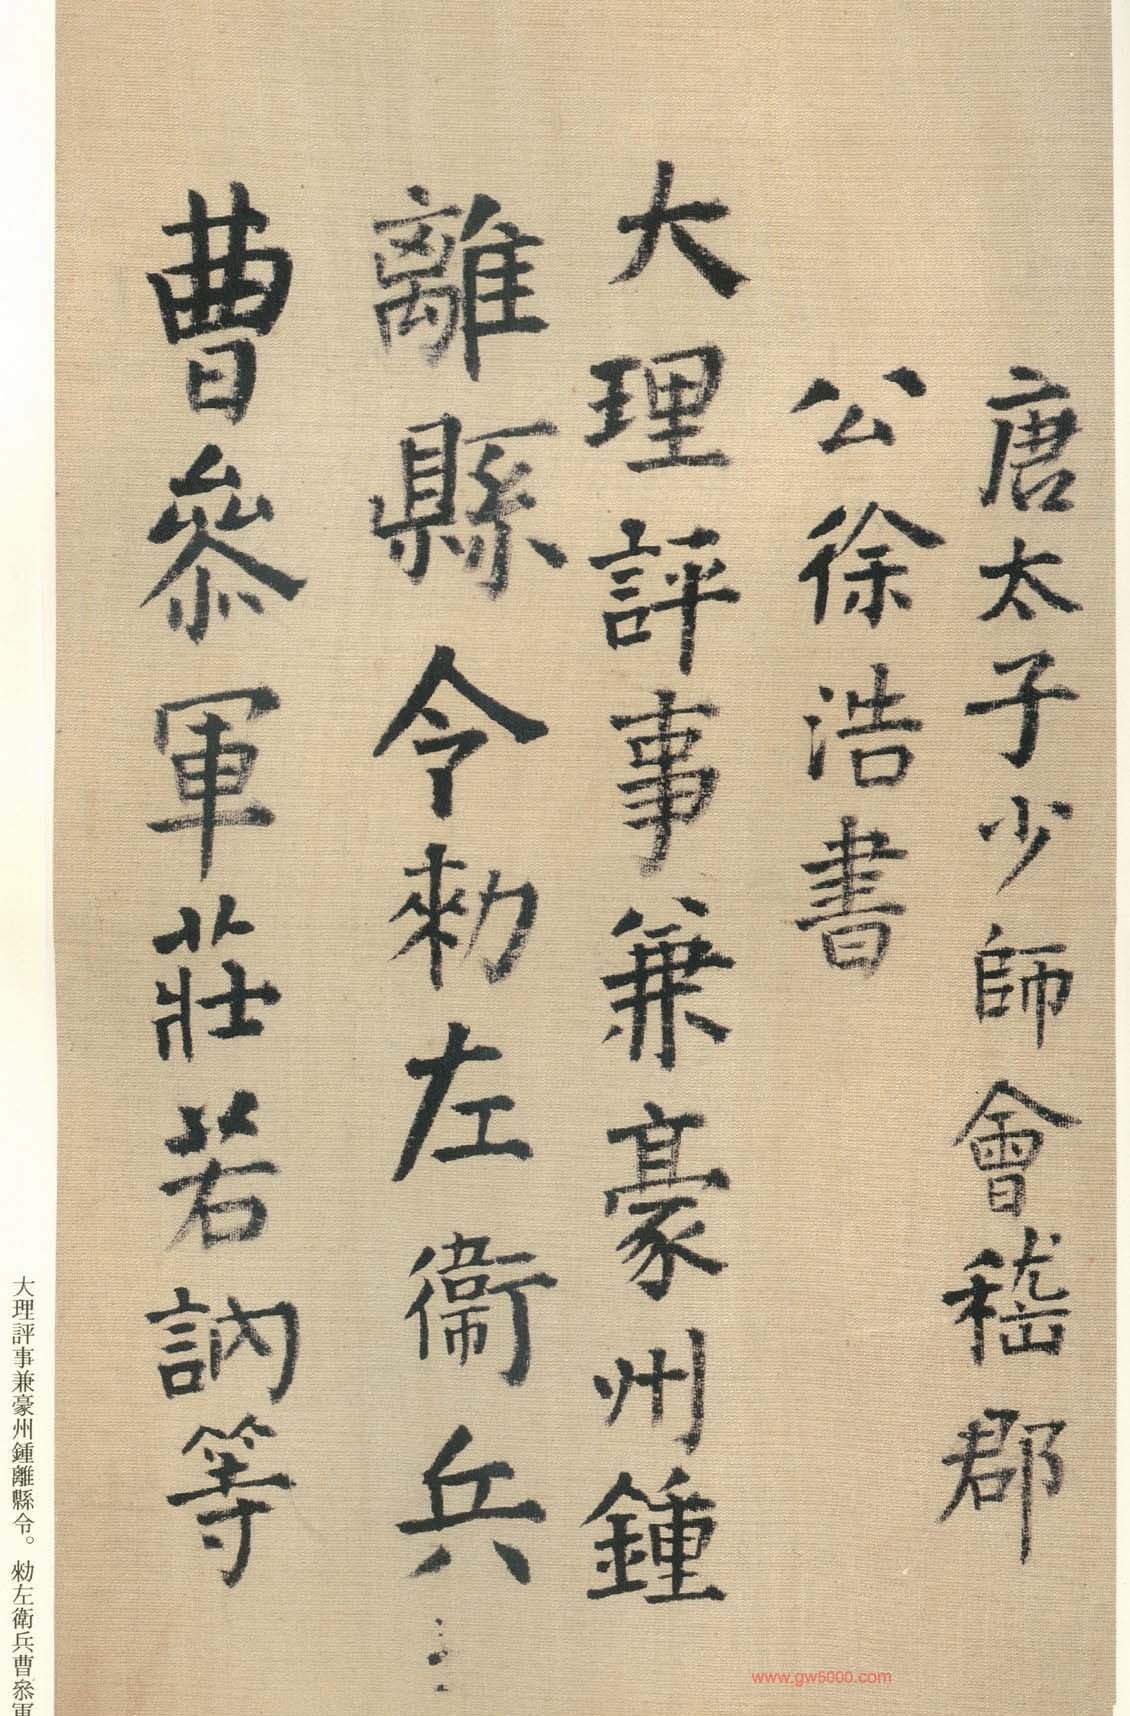 唐太子少師會稽郡
公徐浩書
大理評事兼豪州鍾
離縣令勑左衛兵
曹叅軍莊若訥等
大理評事兼豪州鍾離縣令。勑左衛兵曹叅軍
www.gw5000.com